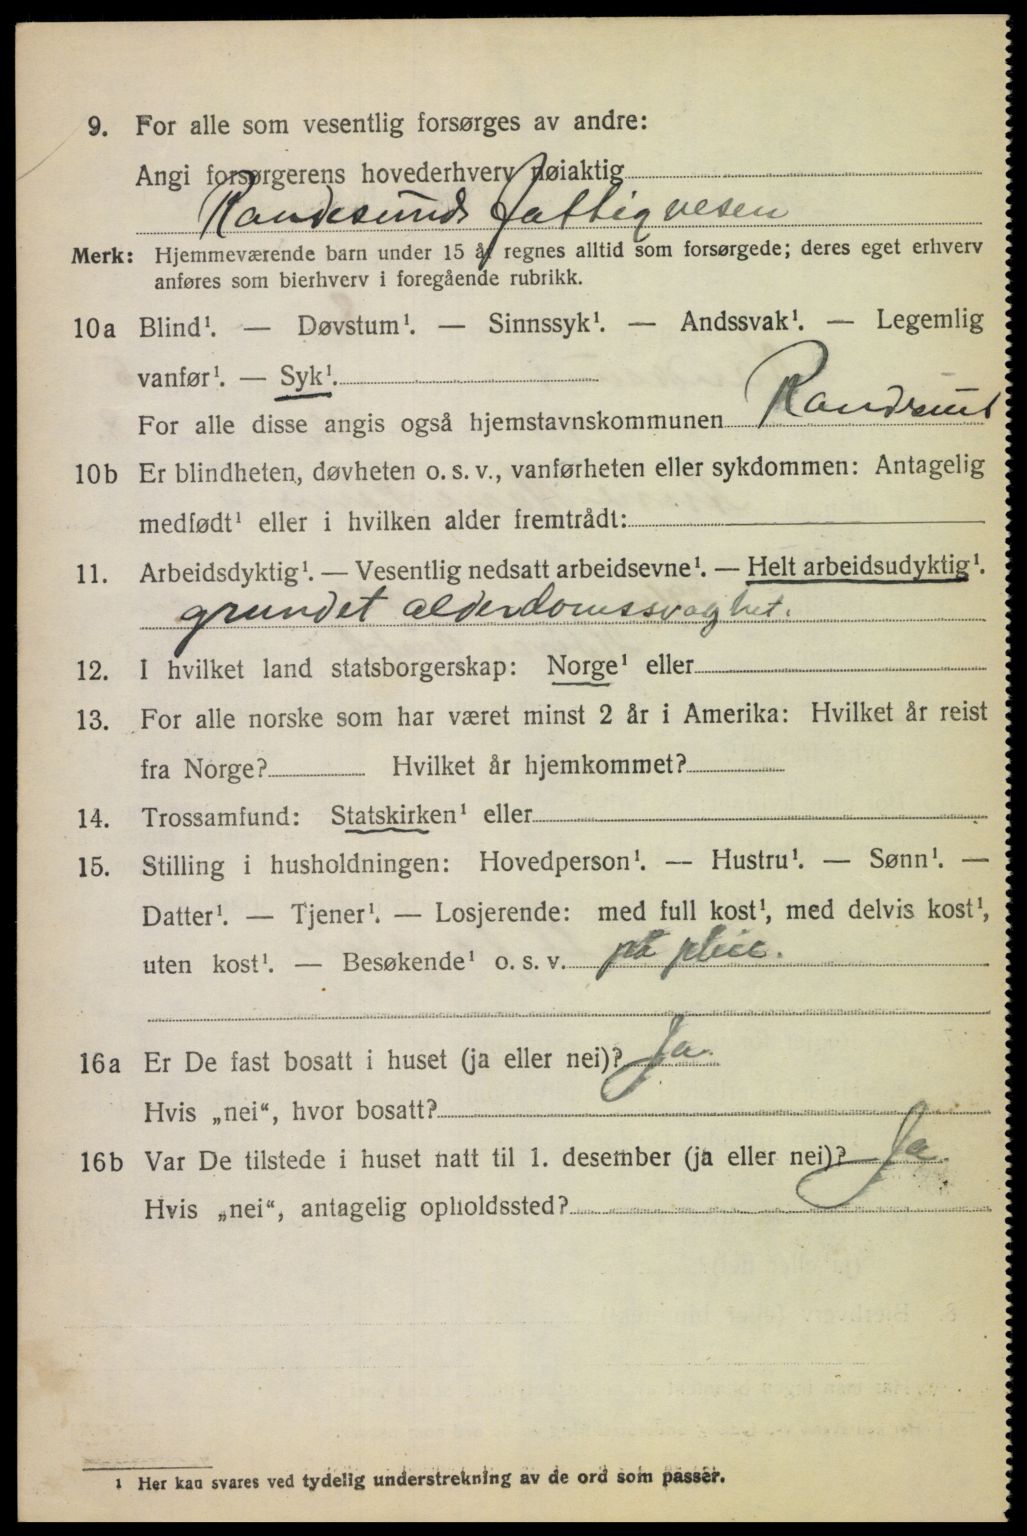 9. For alle som vesentlig forsørges av andre:
Angi forsørgerens hovederhverv nøiaktig
Randesunds fattigvesen
Merk: Hjemmeværende barn under 15 år regnes alltid som forsørgede; deres eget erhverv
anføres som bierhverv i foregående rubrikk.
10a Blind¹. — Døvstum¹. — Sinnssyk¹. — Andssvak¹. — Legemlig
vanfør¹. — Syk¹.
For alle disse angis også hjemstavnskommunen Randesund
10b Er blindheten, døvheten o. s. v., vanførheten eller sykdommen: Antagelig
medfødt¹ eller i hvilken alder fremtrådt:
11. Arbeidsdyktig¹. — Vesentlig nedsatt arbeidsevne¹. — Helt arbeidsudyktig¹.
grundet alderdomssvaghet.
12. I hvilket land statsborgerskap: Norge¹ eller
13. For alle norske som har været minst 2 år i Amerika: Hvilket år reist
fra Norge? Hvilket år hjemkommet?
14. Trossamfund: Statskirken¹ eller
15. Stilling i husholdningen: Hovedperson¹. — Hustru¹. — Sønn¹. —
Datter¹. — Tjener¹. — Losjerende: med full kost¹, med delvis kost¹,
uten kost¹. — Besøkende¹ o. s. v. på pleie.
16a Er De fast bosatt i huset (ja eller nei)? Ja.
Hvis „nei“, hvor bosatt?
16b Var De tilstede i huset natt til 1. desember (ja eller nei)? Ja.
Hvis „nei“, antagelig opholdssted?
¹ Her kan svares ved tydelig understrekning av de ord som passer.